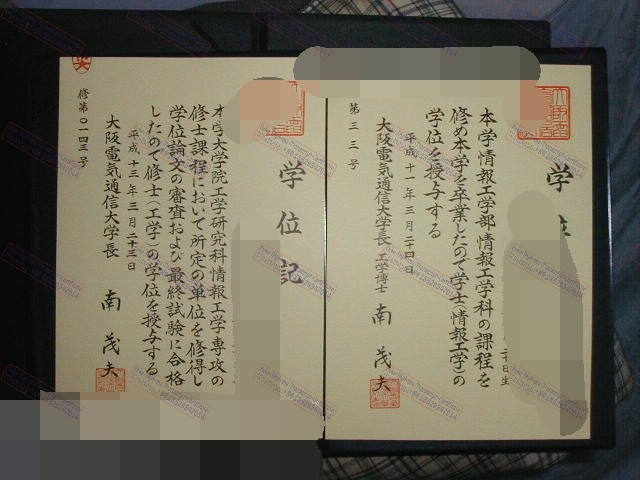 学位
日生
本学情報工学部情報工学科の課程を
修め本学を卒業したので学士(情報工学)の
学位を授与する
平成十一年三月二十四日
大阪電気通信大学長 工学博士 南茂夫
第三三号
学位記
本学大学院工学研究科情報工学専攻の
修士課程において所定の単位を修得し
学位論文の審査および最終試験に合格
したので修士(工学)の学位を授与する
平成十三年三月二十三日
大阪電気通信大学長 南茂夫
修第〇一四三号